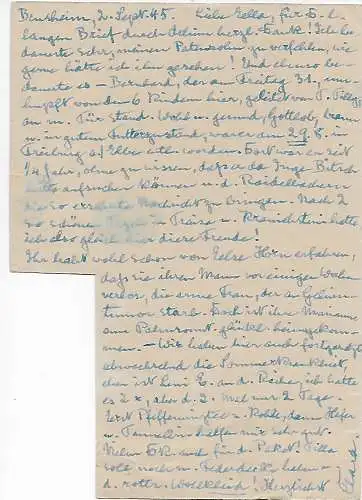 Bensheim, 2. Sept. 45. Liebe Ella, für D. l.
langen Brief durch Achim herzl. Dank! Ich be-
dauerte sehr, meinen Patensohn zu verfehlen, wie
gerne hätte ich ihn gesehen! Und ebenso be-
dauerte es Bernhard, der am Freitag 31.,
von den 6 Kindern hier, geleitet von T. Tilla,
an m. Tür stand. Wohl u. gesund, Gottlob, braun
u. in gutem Futterzustand, war er am 29. 8. in
a/ Elbe entl. worden. Dort war er seit
1/4 Jahr, ohne zu wissen, daß er da Inge
hätte aufsuchen können u. d.
die so ersehnte Nachricht zu bringen. Nach 2
so schönen in Traisa u. Kranichstein hatte
ich also gleich hier diese Freude!
Ihr habt wohl schon von Else Horn erfahren,
daß sie ihren Mann vor einigen Wochen
verlor, die arme Frau, der an
tumor starb. Doch ist ihre Marianne
aus glückl. heimgekom-
men. – Wir haben hier auch fortgesetzt
abwechselnd die Sommerkrankheit,
eben ist E. an d. Reihe, ich hatte
es 2 x, aber d. 2. Mal nur 2 Tage.
Pfefferminztee u. Kohle, dann Hefe
u. helfen mir sehr gut.
Vielen Dk. auch für d. Paket! Tilla
soll noch m. Federdecke haben
d. rote Wollkleid! Herzlichst